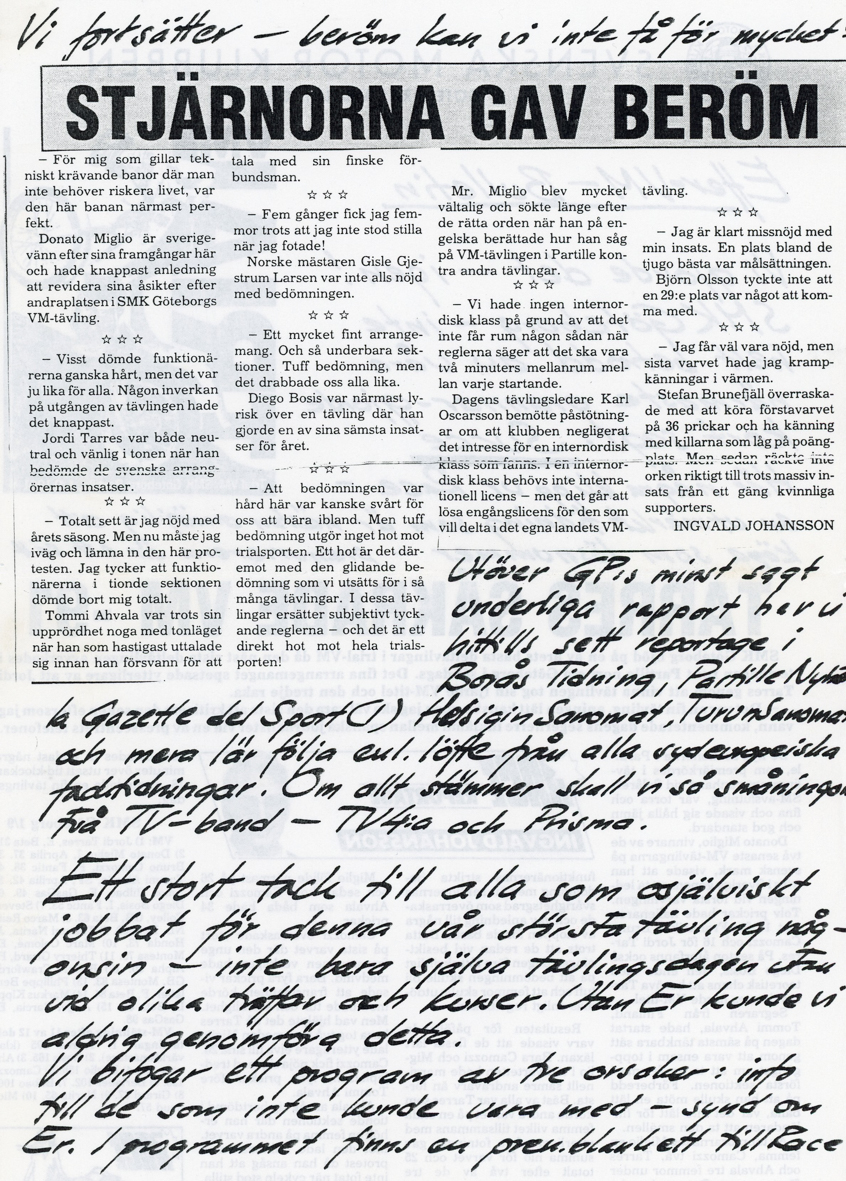 Vi fortsätter – beröm kan vi inte få för mycket:
STJÄRNORNA GAV BERÖM
– För mig som gillar tek-
niskt krävande banor där man
inte behöver riskera livet, var
den här banan närmast per-
fekt.
Donato Miglio är sverige-
vänn efter sina framgångar här
och hade knappast anledning
att revidera sina åsikter efter
andraplatsen i SMK Göteborgs
VM-tävling.
☆ ☆ ☆
– Visst dömde funktionä-
rerna ganska hårt, men det var
ju lika för alla. Någon inverkan
på utgången av tävlingen hade
det knappast.
Jordi Tarres var både neu-
tral och vänlig i tonen när han
bedömde de svenska arrang-
örernas insatser.
☆ ☆ ☆
– Totalt sett är jag nöjd med
årets säsong. Men nu måste jag
iväg och lämna in den här pro-
testen. Jag tycker att funktio-
närerna i tionde sektionen
dömde bort mig totalt.
Tommi Ahvala var trots sin
upprördhet noga med tonläget
när han som hastigast uttalade
sig innan han försvann för att
tala med sin finske för-
bundsman.
☆ ☆ ☆
– Fem gånger fick jag fem-
mor trots att jag inte stod stilla
när jag fotade!
Norske mästaren Gisle Gje-
strum Larsen var inte alls nöjd
med bedömningen.
☆ ☆ ☆
– Ett mycket fint arrange-
mang. Och så underbara sek-
tioner. Tuff bedömning, men
det drabbade oss alla lika.
Diego Bosis var närmast ly-
risk över en tävling där han
gjorde en av sina sämsta insat-
ser för året.
☆ ☆ ☆
– Att bedömningen var
hård här var kanske svårt för
oss att bära ibland. Men tuff
bedömning utgör inget hot mot
trialsporten. Ett hot är det där-
emot med den glidande be-
dömning som vi utsätts för i så
många tävlingar. I dessa täv-
lingar ersätter subjektivt tyck-
ande reglerna – och det är ett
direkt hot mot hela trials-
porten!
Mr. Miglio blev mycket
vältalig och sökte länge efter
de rätta orden när han på en-
gelska berättade hur han såg
på VM-tävlingen i Partille kon-
tra andra tävlingar.
☆ ☆ ☆
– Vi hade ingen internor-
disk klass på grund av att det
inte får rum någon sådan när
reglerna säger att det ska vara
två minuters mellanrum mel-
lan varje startande.
Dagens tävlingsledare Karl
Oscarsson bemötte påstötning-
ar om att klubben negligerat
det intresse för en internordisk
klass som fanns. I en internor-
disk klass behövs inte interna-
tionell licens – men det går att
lösa engångslicens för den som
vill delta i det egna landets VM-
tävling.
☆ ☆ ☆
– Jag är klart missnöjd med
min insats. En plats bland de
tjugo bästa var målsättningen.
Björn Olsson tyckte inte att
en 29:e plats var något att kom-
ma med.
☆ ☆ ☆
– Jag får väl vara nöjd, men
sista varvet hade jag kramp-
känningar i värmen.
Stefan Brunefjäll överraska-
de med att köra förstavarvet
på 36 prickar och ha känning
med killarna som låg på poäng-
plats. Men sedan räckte inte
orken riktigt till trots massiv in-
sats från ett gäng kvinnliga
supporters.
INGVALD JOHANSSON
Utöver GP:s minst sagt
underliga rapport har vi
hittills sett reportage i
Borås Tidning, Partille Nyhe
la Gazette del Sport (!) Helsigin Sanomat, Turun Sanomat
och mera lär följa enl. löfte från alla sydeuropeiska
facktidningar. Om allt stämmer skall vi så småningom
få TV-band – TV4:a och Prisma.
Ett stort tack till alla som osjälviskt
jobbat för denna vår största tävling någ-
onsin – inte bara själva tävlingsdagen utan
vid olika träffar och kurser. Utan Er kunde vi
aldrig genomföra detta.
Vi bifogar ett program av tre orsaker: info
till de som inte kunde vara med – synd om
Er. I programmet finns en pren.blankett till Race